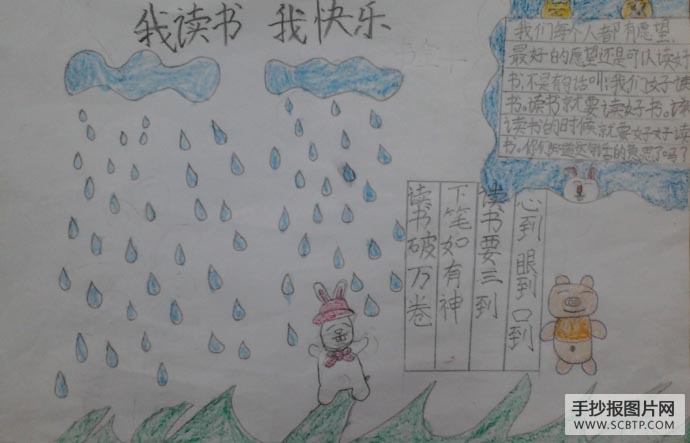 我读书 我快乐
我们每个人都有愿望.
最好的愿望还是可以读好
书,不是有的话叫:我们好好读
书。读书就要读好书。
读书的时候就要好好读
书。你们知道这句话的意思了吗?
读书破万卷
下笔如有神
读书要三到
心到 眼到 口到
手抄报图片网
WWW.SCBTP.COM